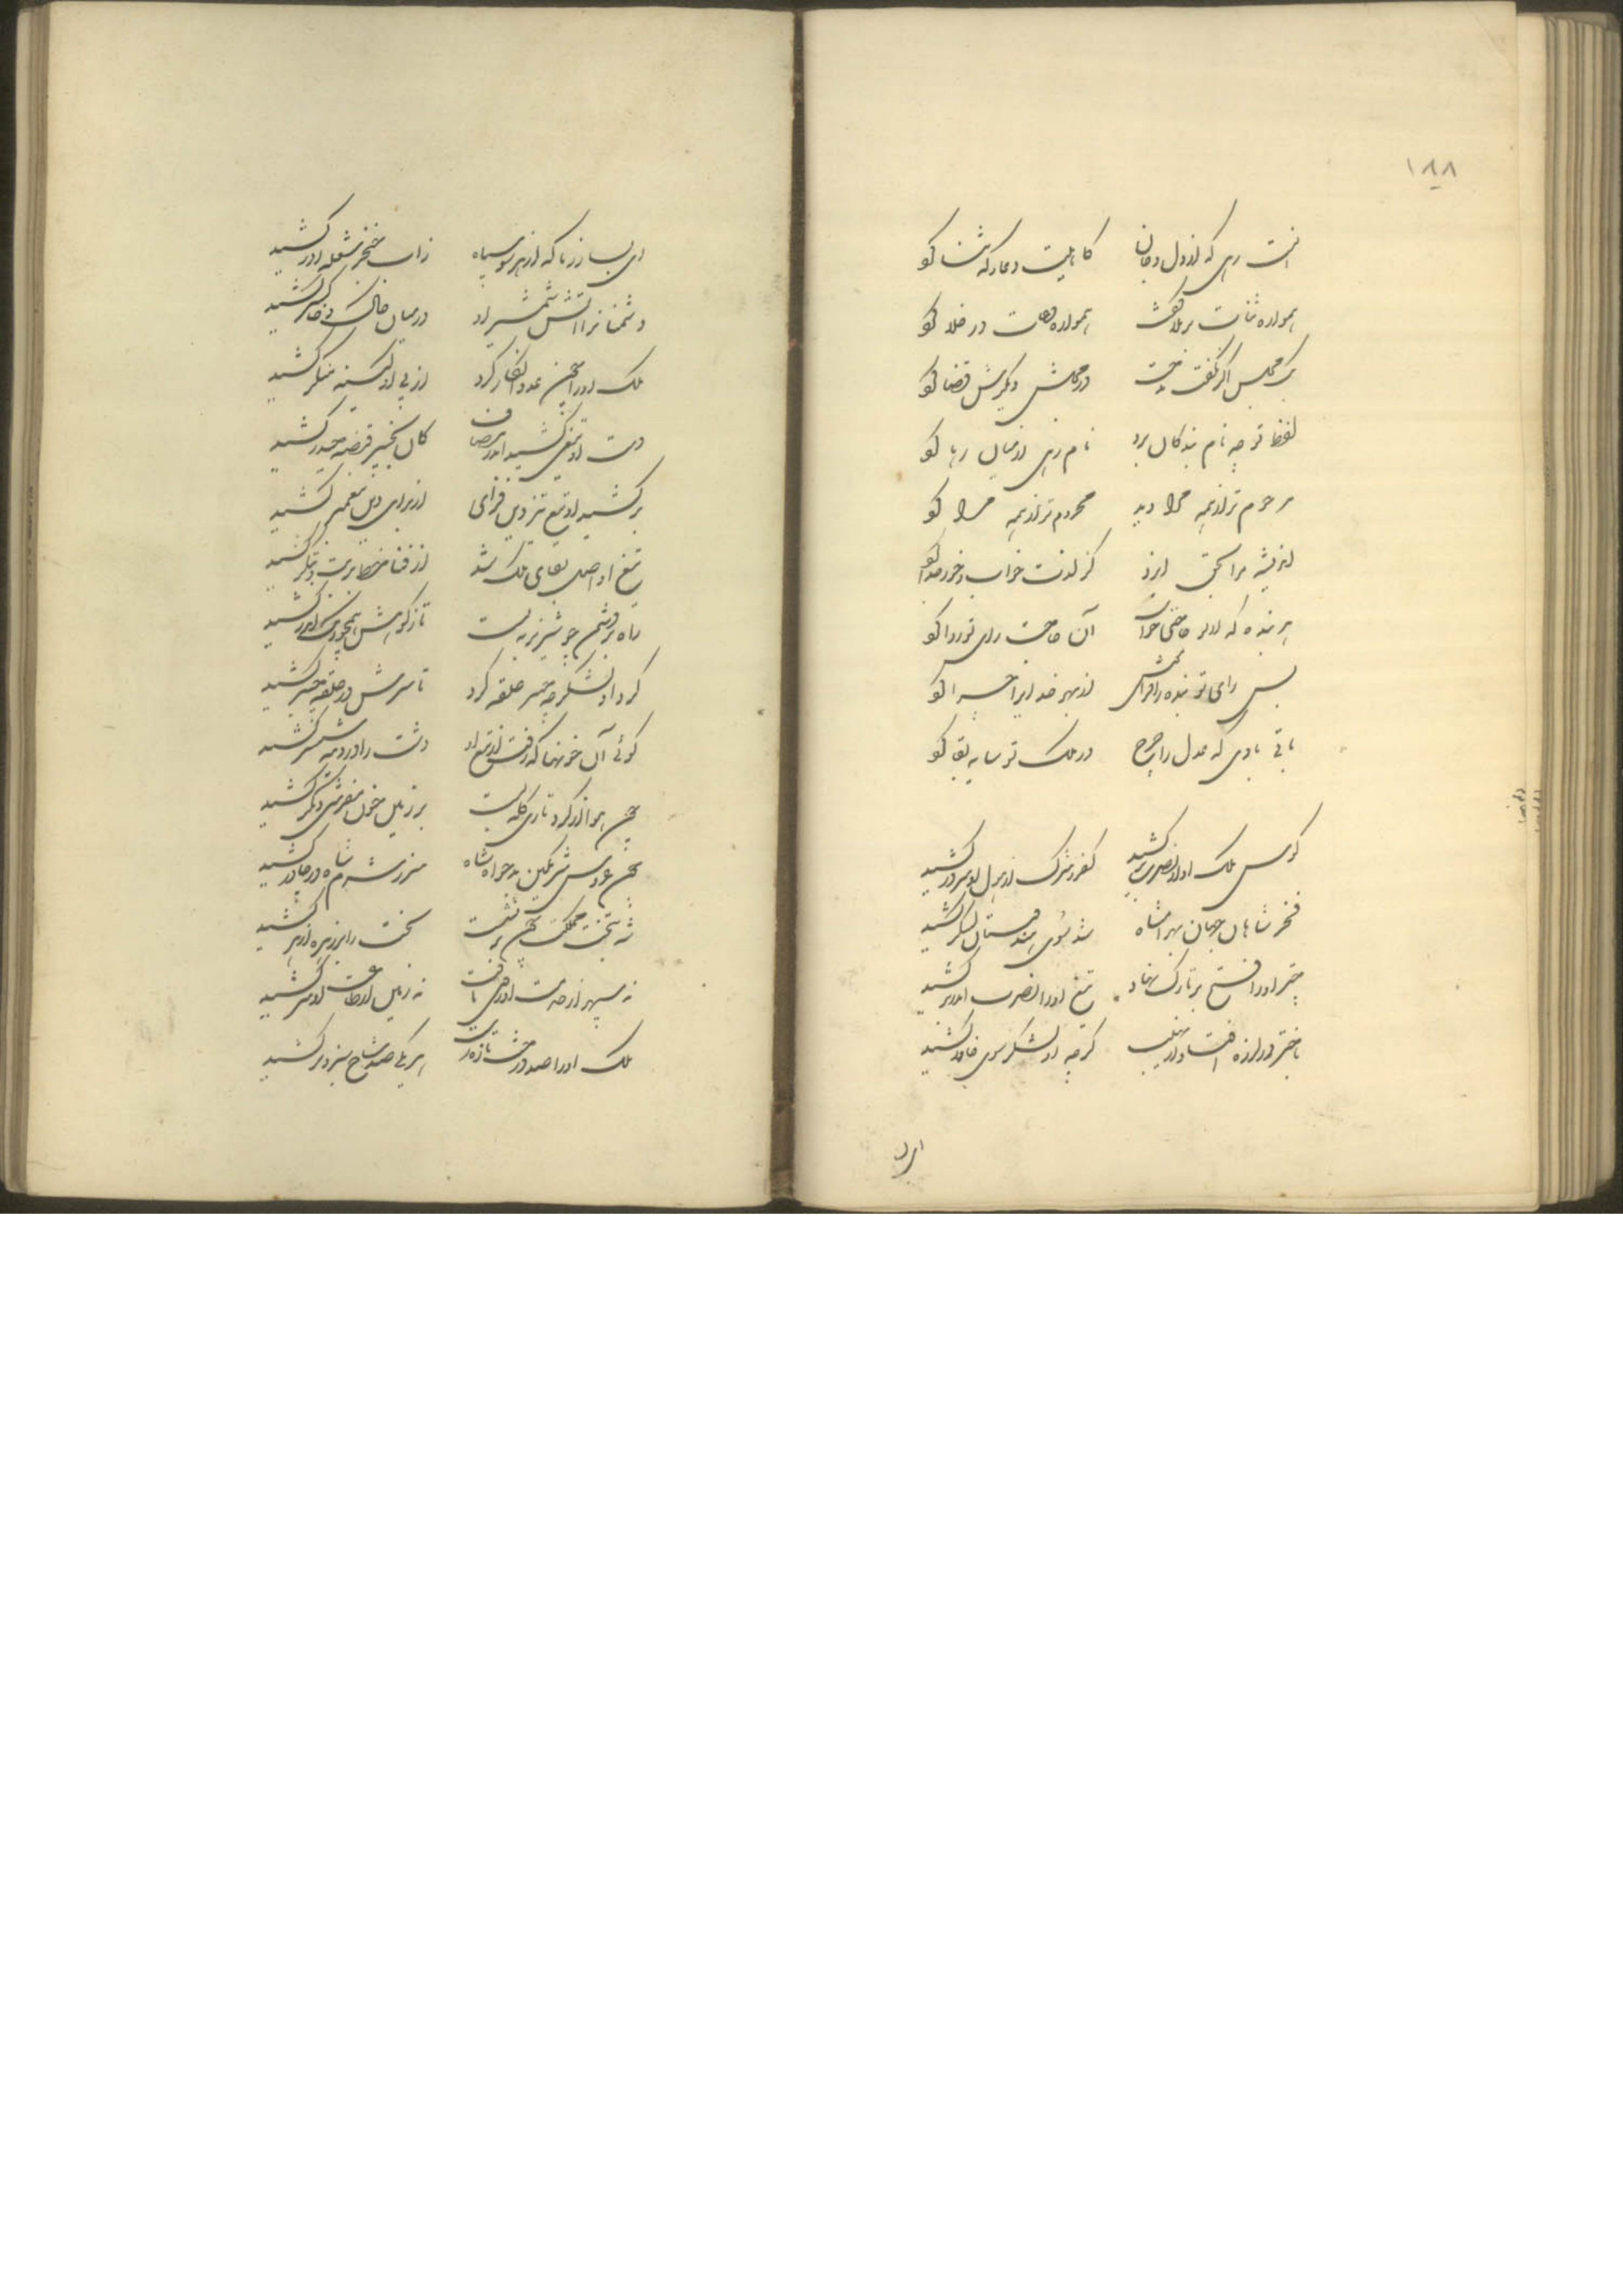 ۱۸۸
اینت رهی که از دل و جان کاهلیت دعا و که ثنا گو
همواره ثنات بر ملا گفت همواره دعات در خلا گو
یک مجلس اگر نگفت مدحت در مجلس دیگرش قضا گو
لفظ تو چه نام بندگان برد نام رهی از میان رها گو
مرحوم تر از همه مرا دید محروم تر از همه مرا گو
اندیشه مرا بحق ایزد کز لذت خواب و خور جدا گو
هر بنده که از تو حاجتی خواست آن حاجت رای تو روا گو
پس رای تو بنده را فرامش از بهر خدایرا چرا گو
باقی بادی که عدل را چرخ در ملک تو سایه بقا گو
کوس ملک آواز نصرت بر کشید کفر و شرک از هول او سر در کشید
فخر شاهان جهان بهرامشاه شد سوی هندوستان لشکر کشید
چتر او را فتح بر تارک نهاد تیغ او را نصرت اندر بر کشید
باختر در لرزه افتاد از نهیب گرچه او لشکر سوی خاور کشید
ای بسا رزما که از بهر سپاه زاب خنجر شعله آذر کشید
دشمنانرا آتش شمشیر او در میان خاک و خاکستر کشید
ملک او را چون عدو انکار کرد از پی او کینه منکر کشید
دست او تیغی کشید اندر مصاف کان بخیبر قبضه حیدر کشید
بر کشید او تیغ تیز دین فزای از برای دین پیغمبر کشید
تیغ او اصل بقای ملک شد از فنا خطی برت و بتگر کشید
راه بر دشمن چو شیر نر ببست
کرد او لشکر چو چنبر حلقه کرد تا سرش در حلقه چنبر کشید
گوئی آن خونها که رفت از تیغ او دشت را در دیبه ششتر کشید
چون هوا از گرد تاری کله بست بر زمین خون مفرشی دیگر کشید
چون عروس شرمگین بدخواه شاه سر ز شرم شاه در چادر کشید
شه بتخت مملکت چون بر نشست تخت را بر زهره ازهر کشید
نه سپهر از خدمت او رخ بتافت نه زمین از طاعت او سر کشید
ملک او را صد درخت تازه رست هر یکی صد شاخ سبز و تر کشید